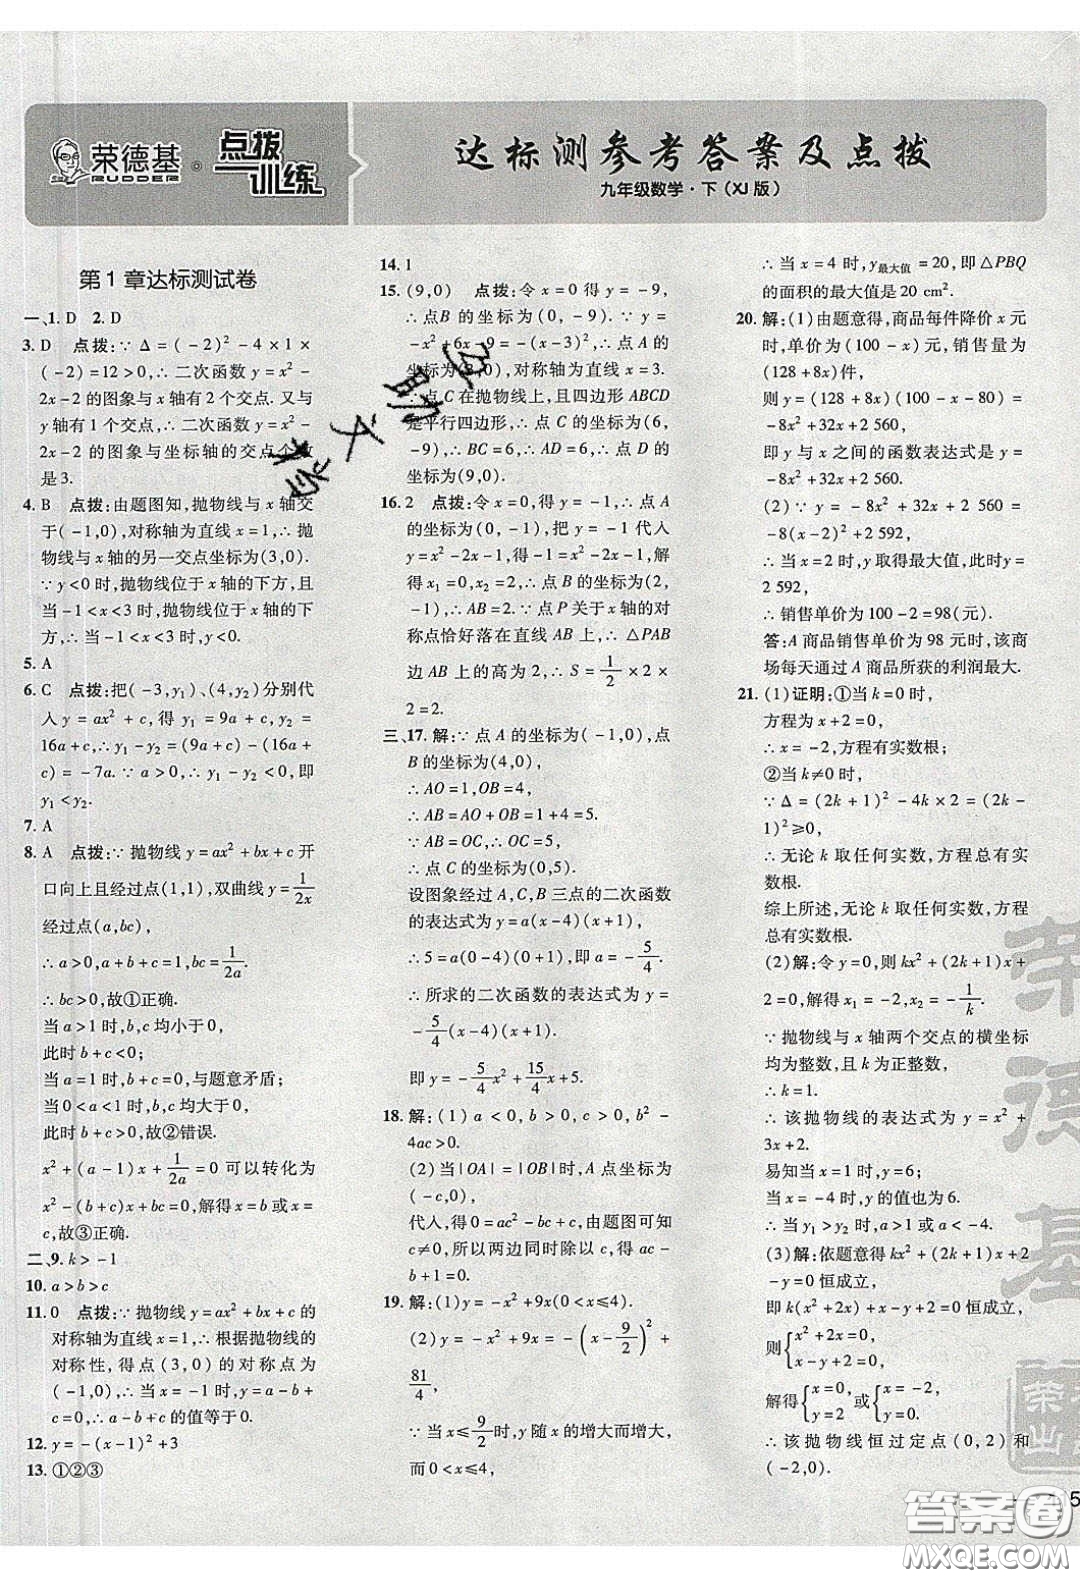 荣德基
RUDDER
点拨
训练
达标测参考答案及点拨
九年级数学·下(XJ版)
第1章达标测试卷
一、1. D 2. D
3. D 点拨:∵Δ=(-2)²-4×1×
(-2)=12>0,∴二次函数y=x²-
2x-2的图象与x轴有2个交点.又与
y轴有1个交点,∴二次函数y=x²-
2x-2的图象与坐标轴的交点个数
是3.
4. B 点拨:由题图知,抛物线与x轴交
于(-1,0),对称轴为直线x=1,∴抛
物线与x轴的另一交点坐标为(3,0).
∵y<0时,抛物线位于x轴的下方,且
当-1<x<3时,抛物线位于x轴的下
方,∴当-1<x<3时,y<0.
5. A
6. C 点拨:把(-3,y₁)、(4,y₂)分别代
入y=ax²+c,得y₁=9a+c,y₂=
16a+c,∴y₁-y₂=9a+c-(16a+
c)=-7a.∵a>0,∴y₁-y₂<0,即
y₁<y₂.
7. A
8. A 点拨:∵抛物线y=ax²+bx+c开
口向上且经过点(1,1),双曲线y=1/2x
经过点(a,bc),
∴a>0,a+b+c=1,bc=1/2a.
∴bc>0,故①正确.
当a>1时,b,c均小于0,
此时b+c<0;
当a=1时,b+c=0,与题意矛盾;
当0<a<1时,b,c均大于0,
此时b+c>0,故②错误.
x²+(a-1)x+1/2a=0可以转化为
x²-(b+c)x+bc=0,解得x=b或x=
c,故③正确.
二、9. k>-1
10. a>b>c
11. 0 点拨:∵抛物线y=ax²+bx+c的
对称轴为直线x=1,∴根据抛物线的
对称性,得点(3,0)的对称点为
(-1,0),∴当x=-1时,y=a-b+
c=0.∴a-b+c的值等于0.
12. y=-(x-1)²+3
13. ①②③
14. 1
15. (9,0) 点拨:令x=0得y=-9,
∴点B的坐标为(0,-9).∵y=
-x²+6x-9=-(x-3)²,∴点A的
坐标为(3,0),对称轴为直线x=3.
∵点C在抛物线上,且四边形ABCD
是平行四边形,∴点C的坐标为(6,
-9),∴BC=6,∴AD=6,∴点D的
坐标为(9,0).
16. 2 点拨:令x=0,得y=-1,∴点A
的坐标为(0,-1),把y=-1代入
y=x²-2x-1,得-1=x²-2x-1,解
得x₁=0,x₂=2,∴点B的坐标为(2,
-1),∴AB=2.∵点P关于x轴的对
称点恰好落在直线AB上,∴△PAB
边AB上的高为2,∴S=1/2×2×
2=2.
三、17. 解:∵点A的坐标为(-1,0),点
B的坐标为(4,0),
∴AO=1,OB=4,
∴AB=AO+OB=1+4=5.
∵AB=OC,∴OC=5,
∴点C的坐标为(0,5).
设图象经过A,C,B三点的二次函数
的表达式为y=a(x-4)(x+1),
∴5=a(0-4)(0+1),即a=-5/4.
∴所求的二次函数的表达式为y=
-5/4(x-4)(x+1),
即y=-5/4x²+15/4x+5.
18. 解:(1)a<0,b>0,c>0,b²-
4ac>0.
(2)当|OA|=|OB|时,A点坐标为
(-c,0),
代入,得0=ac²-bc+c,由题图可知
c≠0,所以两边同时除以c,得
ac-b+1=0,即ac+1=b.
19. 解:(1)y=-x²+9x(0<x≤4).
(2)y=-x²+9x=-(x-9/2)²+
81/4,
∵当x≤9/2时,y随x的增大而增大,
而0<x≤4,
∴当x=4时,y最大值=20,即△PBQ
的面积的最大值是20 cm².
20. 解:(1)由题意得,商品每件降价x元
时,单价为(100-x)元,销售量为
(128+8x)件,
则y=(128+8x)(100-x-80)=
-8x²+32x+2 560,
即y与x之间的函数表达式是y=
-8x²+32x+2 560.
(2)∵y=-8x²+32x+2 560=
-8(x-2)²+2 592,
∴当x=2时,y取得最大值,此时y=
2 592,
∴销售单价为100-2=98(元).
答:A商品销售单价为98元时,该商
场每天通过A商品所获的利润最大.
21. (1)证明:①当k=0时,
方程为x+2=0,
∴x=-2,方程有实数根;
②当k≠0时,
∵Δ=(2k+1)²-4k×2=(2k-
1)²≥0,
∴无论k取任何实数,方程总有实
数根.
综上所述,无论k取任何实数,方程
总有实数根.
(2)解:令y=0,则kx²+(2k+1)x+
2=0,解得x₁=-2,x₂=-1/k.
∵抛物线与x轴两个交点的横坐标
均为整数,且k为正整数,
∴k=1.
∴该抛物线的表达式为y=x²+
3x+2.
易知当x=1时,y=6;
当x=-4时,y的值也为6.
∴当y₁>y₂时,a>1或a<-4.
(3)解:依题意得kx²+(2k+1)x+2
-y=0恒成立,
即k(x²+2x)+x-y+2=0恒成立,
则{x²+2x=0,
x-y+2=0.
解得{x=0,或{x=-2,
y=2 y=0.
∴该抛物线恒过定点(0,2)和
(-2,0).
荣德基
答案圈
MXQE.COM